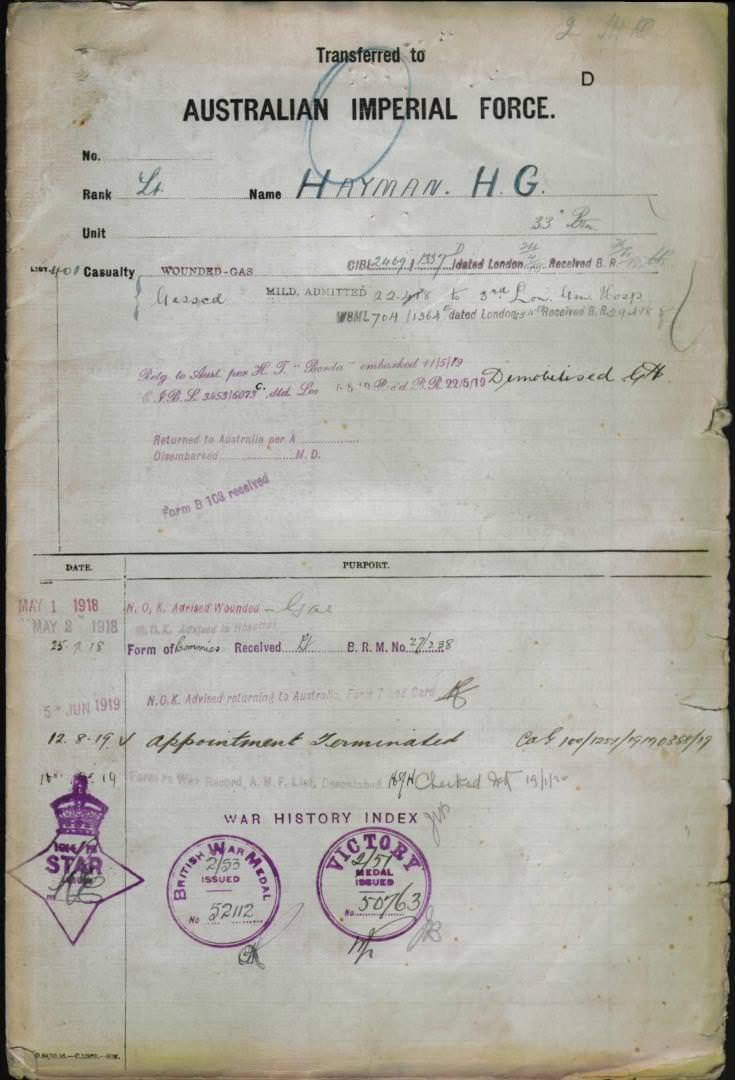 Transferred to
D
AUSTRALIAN IMPERIAL FORCE.
No.
Rank Lt. Name HAYMAN. H.G.
Unit 33rd Btn.
LIST 401 Casualty WOUNDED-GAS CIBL 2469/1337 D dated London Received B.R.
Gassed MILD, ADMITTED 22.4.18 to 3rd Lon. Gen. Hosp
WBML 704/1364 dated London Received B.R.
Retg. to Aust. per H.T. "Borda" embarked 11/5/19
C.I.B.L. 3453/6073 C, dtd. Lon Rec'd B.R. 22/5/19 Demobilised
Returned to Australia per
Disembarked M.D.
Form B 103 received
DATE. PURPORT.
MAY 1 1918 N.O.K. Advised Wounded - Gas
MAY 2 1918 N.O.K. Advised in Hospital
25.7.18 Form of Commies Received B.R.M. No. 27/238
5 JUN 1919 N.O.K. Advised returning to Australia, Form Card
12.8.19 Appointment Terminated
19 Form re War Record, A.M.F. List, Despatched Checked 19/1/20
WAR HISTORY INDEX
1914/15
STAR
BRITISH WAR MEDAL
2/53
ISSUED
No 52112
VICTORY
2/51
MEDAL
ISSUED
No. 50763